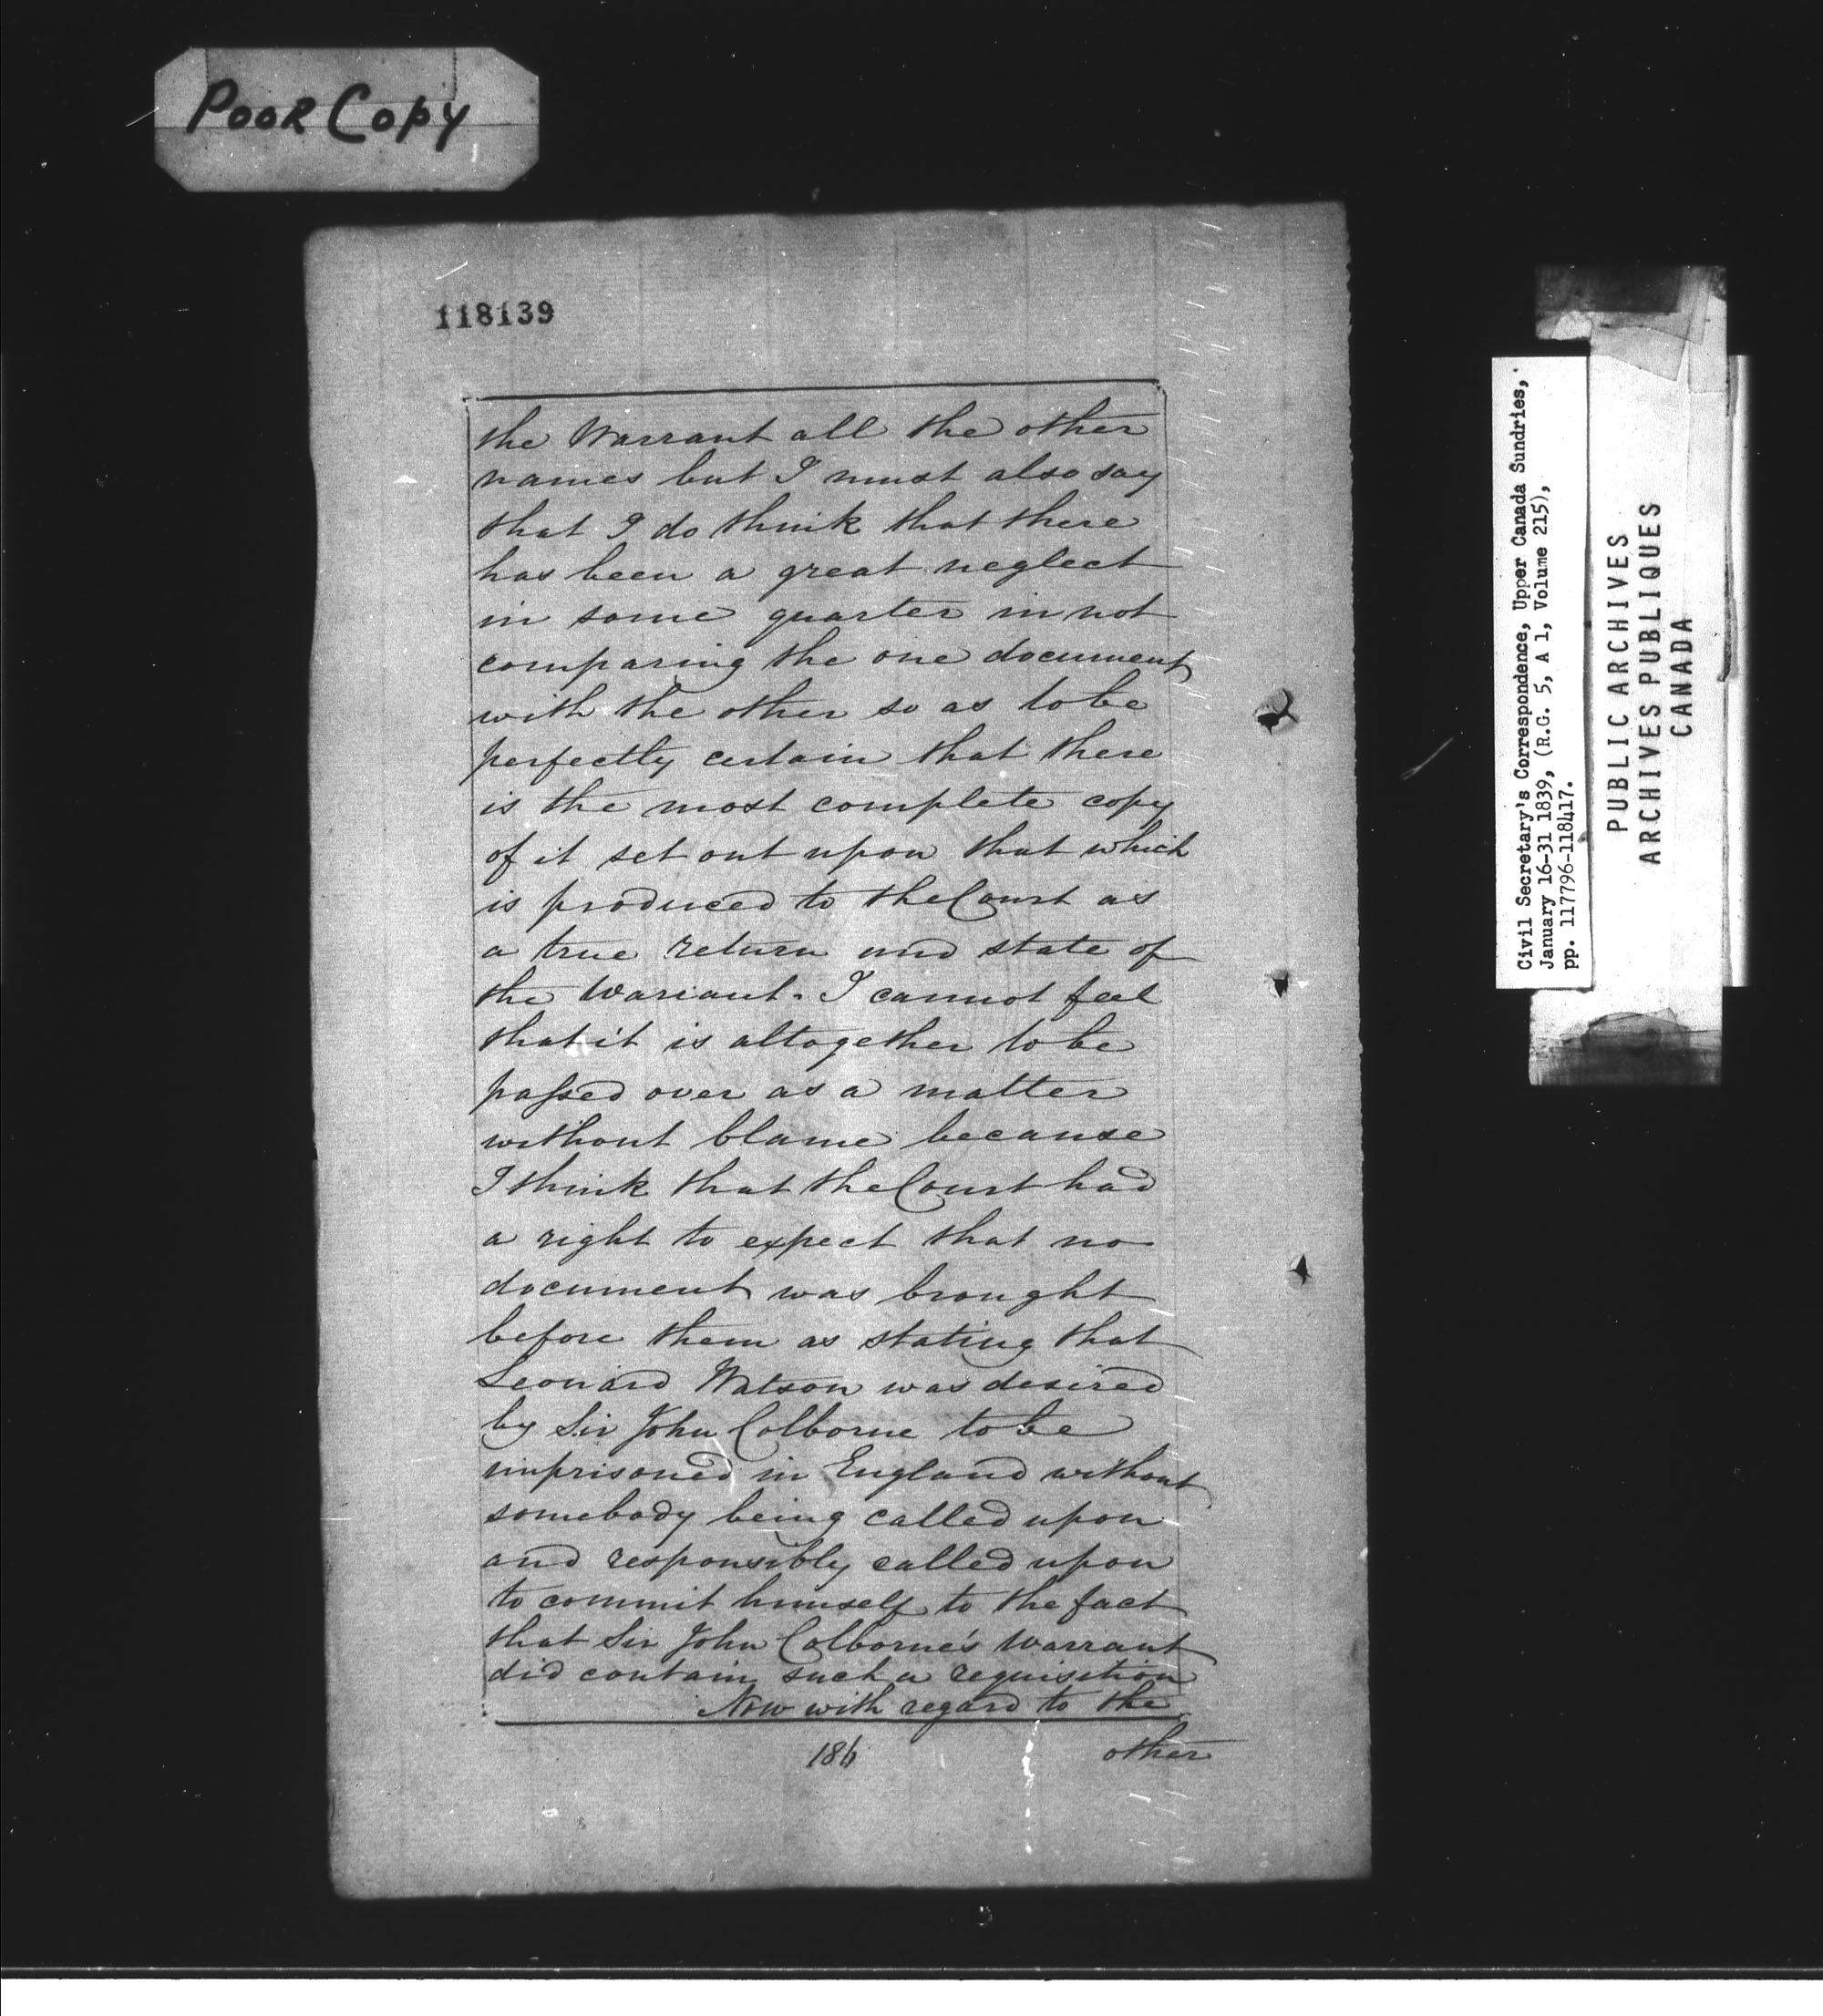 Poor Copy
118139
the Warrant all the other
names but I must also say
that I do think that there
has been a great neglect
in some quarter in not
comparing the one document
with the other so as to be
perfectly certain that there
is the most complete copy
of it set out upon that which
is produced to the Court as
a true return and state of
the Warrant. I cannot feel
that it is altogether to be
passed over as a matter
without blame because
I think that the Court had
a right to expect that no
document was brought
before them as stating that
Leonard Watson was desired
by Sir John Colborne to be
imprisoned in England without
somebody being called upon
and responsibly called upon
to commit himself to the fact
that Sir John Colborne's Warrant
did contain such a requisition
Now with regard to the
186
other
Civil Secretary's Correspondence, Upper Canada Sundries,
January 16-31 1839, (R.G. 5, A 1, Volume 215),
pp. 117796-118417.
PUBLIC ARCHIVES
ARCHIVES PUBLIQUES
CANADA